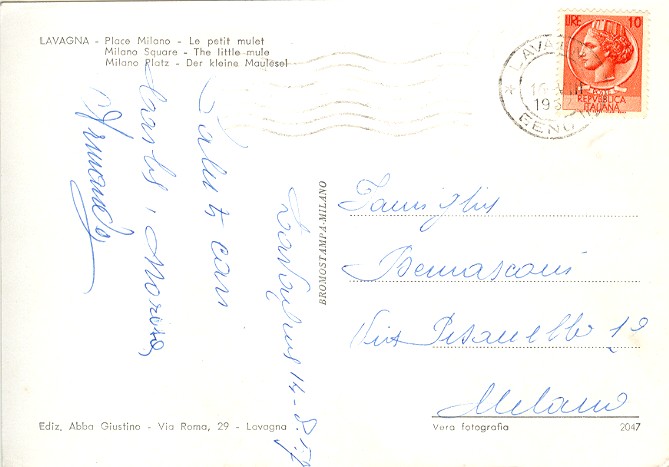 LAVAGNA - Place Milano - Le petit mulet
Milano Square - The little mule
Milano Platz - Der kleine Maulesel
LIRE 10
REPVBBLICA
ITALIANA
LAVAGNA
GENOVA
Saluti cari
Armando
BROMOSTAMPA-MILANO
Famiglia
Bernasconi
Via Pisanello 1º
Milano
Ediz. Abba Giustino - Via Roma, 29 - Lavagna
Vera fotografia
2047